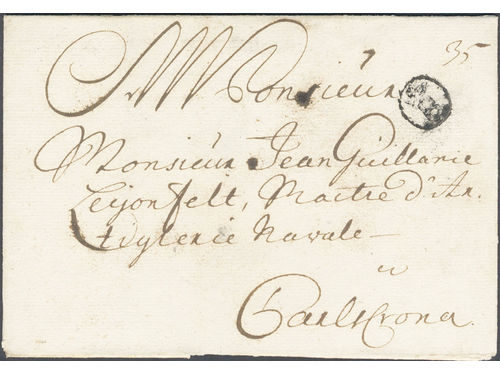 35
Monsieur
Monsieur Jean Guillaúme
Leijonfelt, Maitre d'Ar,
tuglerie Navale
a
Carlscrona.